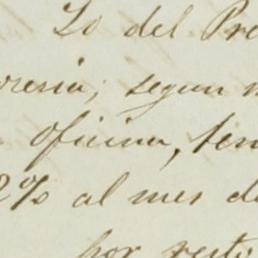 Lo del Pre
resia; segun
oficina, ten
2% al mes d
por resto